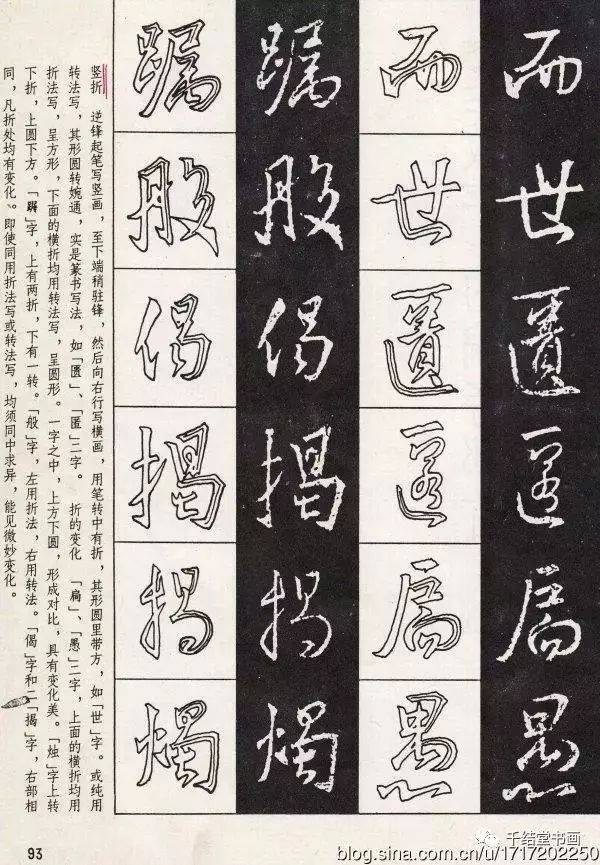 而
世
匱
匿
扁
愚
般
偈
揭
揭
燭
竖折 逆锋起笔写竖画，至下端稍驻锋，然后向右行写横画，用笔转中有折，其形圆里带方，如「世」字。或纯用
转法写，其形圆转婉通，实是篆书写法，如「匮」、「匿」二字。 折的变化 「扁」、「愚」二字，上面的横折均用
折法写，呈方形，下面的横折均用转法写，呈圆形。一字之中，上方下圆，形成对比，具有变化美。「烛」字上转
下折，上圆下方。「」字，上有两折，下有一转。「般」字，左用折法，右用转法。「偈」字和二「揭」字，右部相
同，凡折处均有变化。即使同用折法写或转法写，均须同中求异，能见微妙变化。
93
千结堂书画
blog.sina.com.cn/u/1717202250